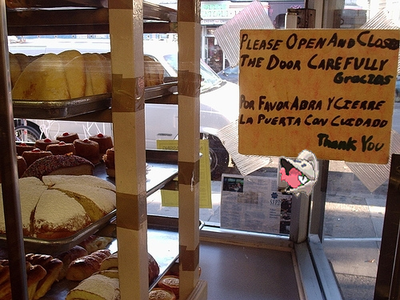 PLEASE OPEN AND CLOSE
THE DOOR CAREFULLY
Gracias
POR FAVOR ABRA Y CIERRE
LA PUERTA CON CUIDADO
Thank You